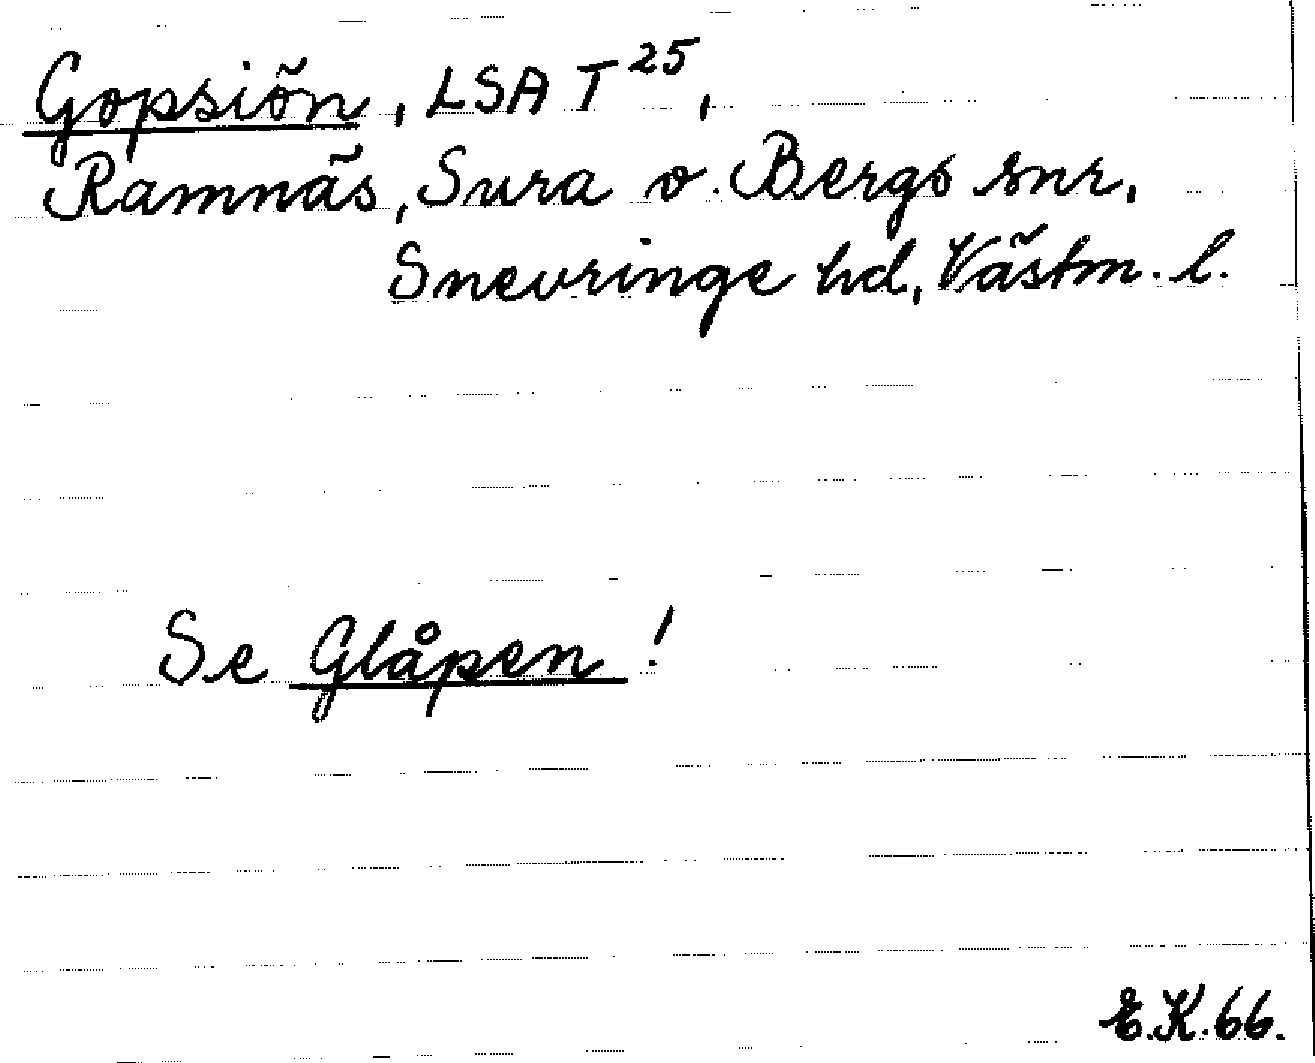 Gopsiön, LSA T 25,
Ramnäs, Sura o. Bergs snr,
Snevringe hd, Västm. l.
Se Glåpen!
E.K. 66.